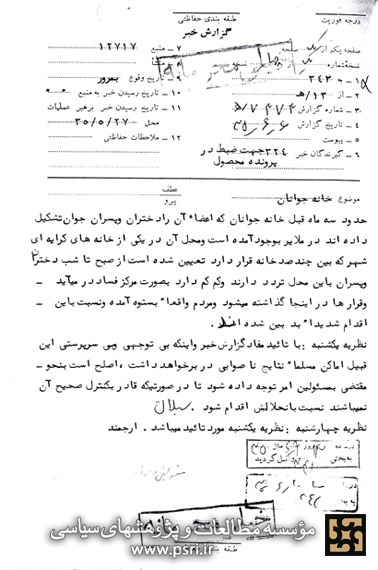 درجه فوریت
طبقه بندی حفاظتی
گزارش خبر
صفحه یکم از یک صفحه
نسخه شماره
۱ - به ۳۴۲
۲ - از ۱۳/ه
۳ - شماره گزارش
۴ - تاریخ گزارش
۵ - پیوست
۶ - گیرندگان خبر ۳۲۴ جهت ضبط در پرونده محصول
۷ - منبع ۱۲۷۱۷
۹ - تاریخ وقوع بمرور
۱۰ - تاریخ رسیدن خبر به منبع
۱۱ - تاریخ رسیدن خبر برهبر عملیات
محل ۳۵/۵/۲۷
۱۲ - ملاحظات حفاظتی
موضوع خانه جوانان
عطف
پیرو
حدود سه ماه قبل خانه جوانان که اعضاء آن را دختران وپسران جوان تشکیل
داده اند در ملایر بوجود آمده است ومحل آن در یکی از خانه های کرایه ای
شهر که بین چند صد خانه قرار دارد تعیین شده است از صبح تا شب دختران
وپسران باین محل تردد دارند وکم کم دارد بصورت مرکز فساد در میآید -
وقرار ها در اینجا گذاشته میشود ومردم واقعاً بستوه آمده ونسبت باین -
اقدام شدیداً بد بین شده اند.
نظریه یکشنبه : با تائید مفاد گزارش خبر واینکه بی توجهی وبی سرپرستی این
قبیل اماکن مسلماً نتایج نا صوابی در برخواهد داشت ، اصلح است بنحو -
مقتضی بمسئولین امر توجه داده شود تا در صورتیکه قادر بکنترل صحیح آن
نمیباشند نسبت بانحلالش اقدام شود .
نظریه چهارشنبه : نظریه یکشنبه مورد تائید میباشد . ارجمند
مؤسسه مطالعات و پژوهشهای سیاسی
www.psri.ir